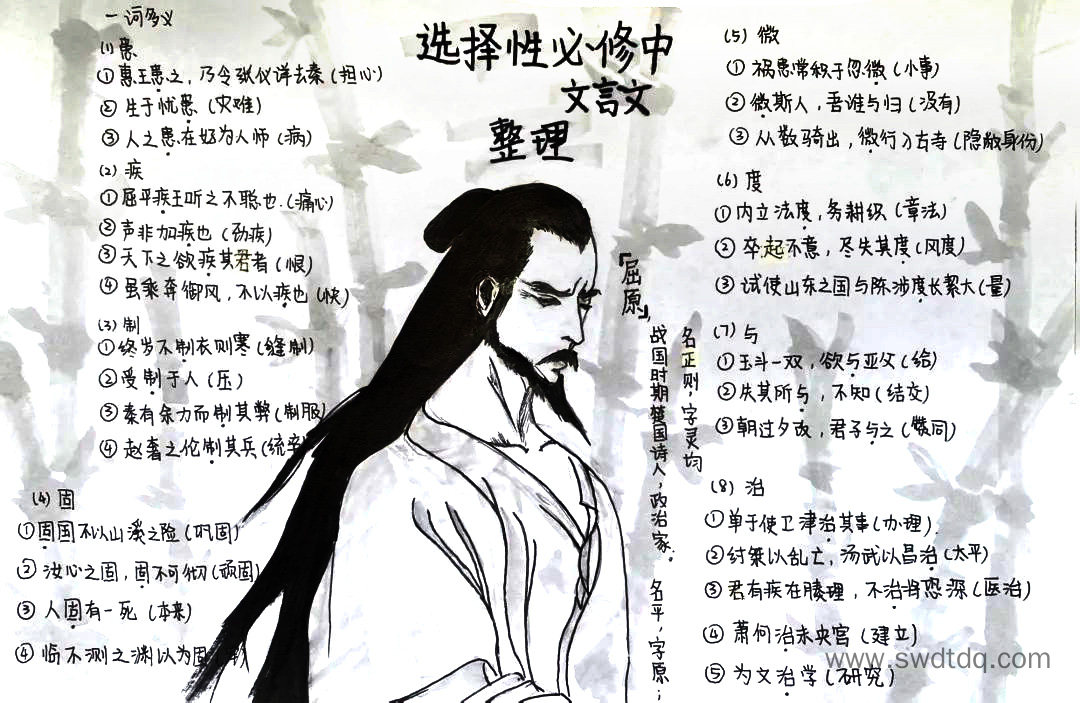 选择性必修中
文言文
整理
一词多义
(1) 患
① 惠王患之，乃令张仪详去秦（担心）
② 生于忧患（灾难）
③ 人之患在好为人师（病）
(2) 疾
① 屈平疾王听之不聪也.（痛心）
② 声非加疾也（劲疾）
③ 天下之欲疾其君者（恨）
④ 虽乘奔御风，不以疾也（快）
(3) 制
① 终岁不制衣则寒（缝制）
② 受制于人（压）
③ 秦有余力而制其弊（制服）
④ 赵奢之伦制其兵（统率
(4) 固
① 固国不以山溪之险（巩固）
② 汝心之固，固不可彻（顽固）
③ 人固有一死（本来）
④ 临不测之渊以为固
「屈原」，
战国时期楚国诗人，政治家. 名平，字原；
名正则，字灵均
(5) 微
① 祸患常积于忽微（小事）
② 微斯人，吾谁与归（没有）
③ 从数骑出，微行入古寺（隐蔽身份）
(6) 度
① 内立法度，务耕织（章法）
② 卒起不意，尽失其度（风度）
③ 试使山东之国与陈涉度长絜大（量）
(7) 与
① 玉斗一双，欲与亚父（给）
② 失其所与，不知（结交）
③ 朝过夕改，君子与之（赞同）
(8) 治
① 单于使卫律治其事（办理）
② 纣桀以乱亡，汤武以昌治（太平）
③ 君有疾在腠理，不治将恐深（医治）
④ 萧何治未央宫（建立）
⑤ 为文治学（研究）
www.swdtdq.com